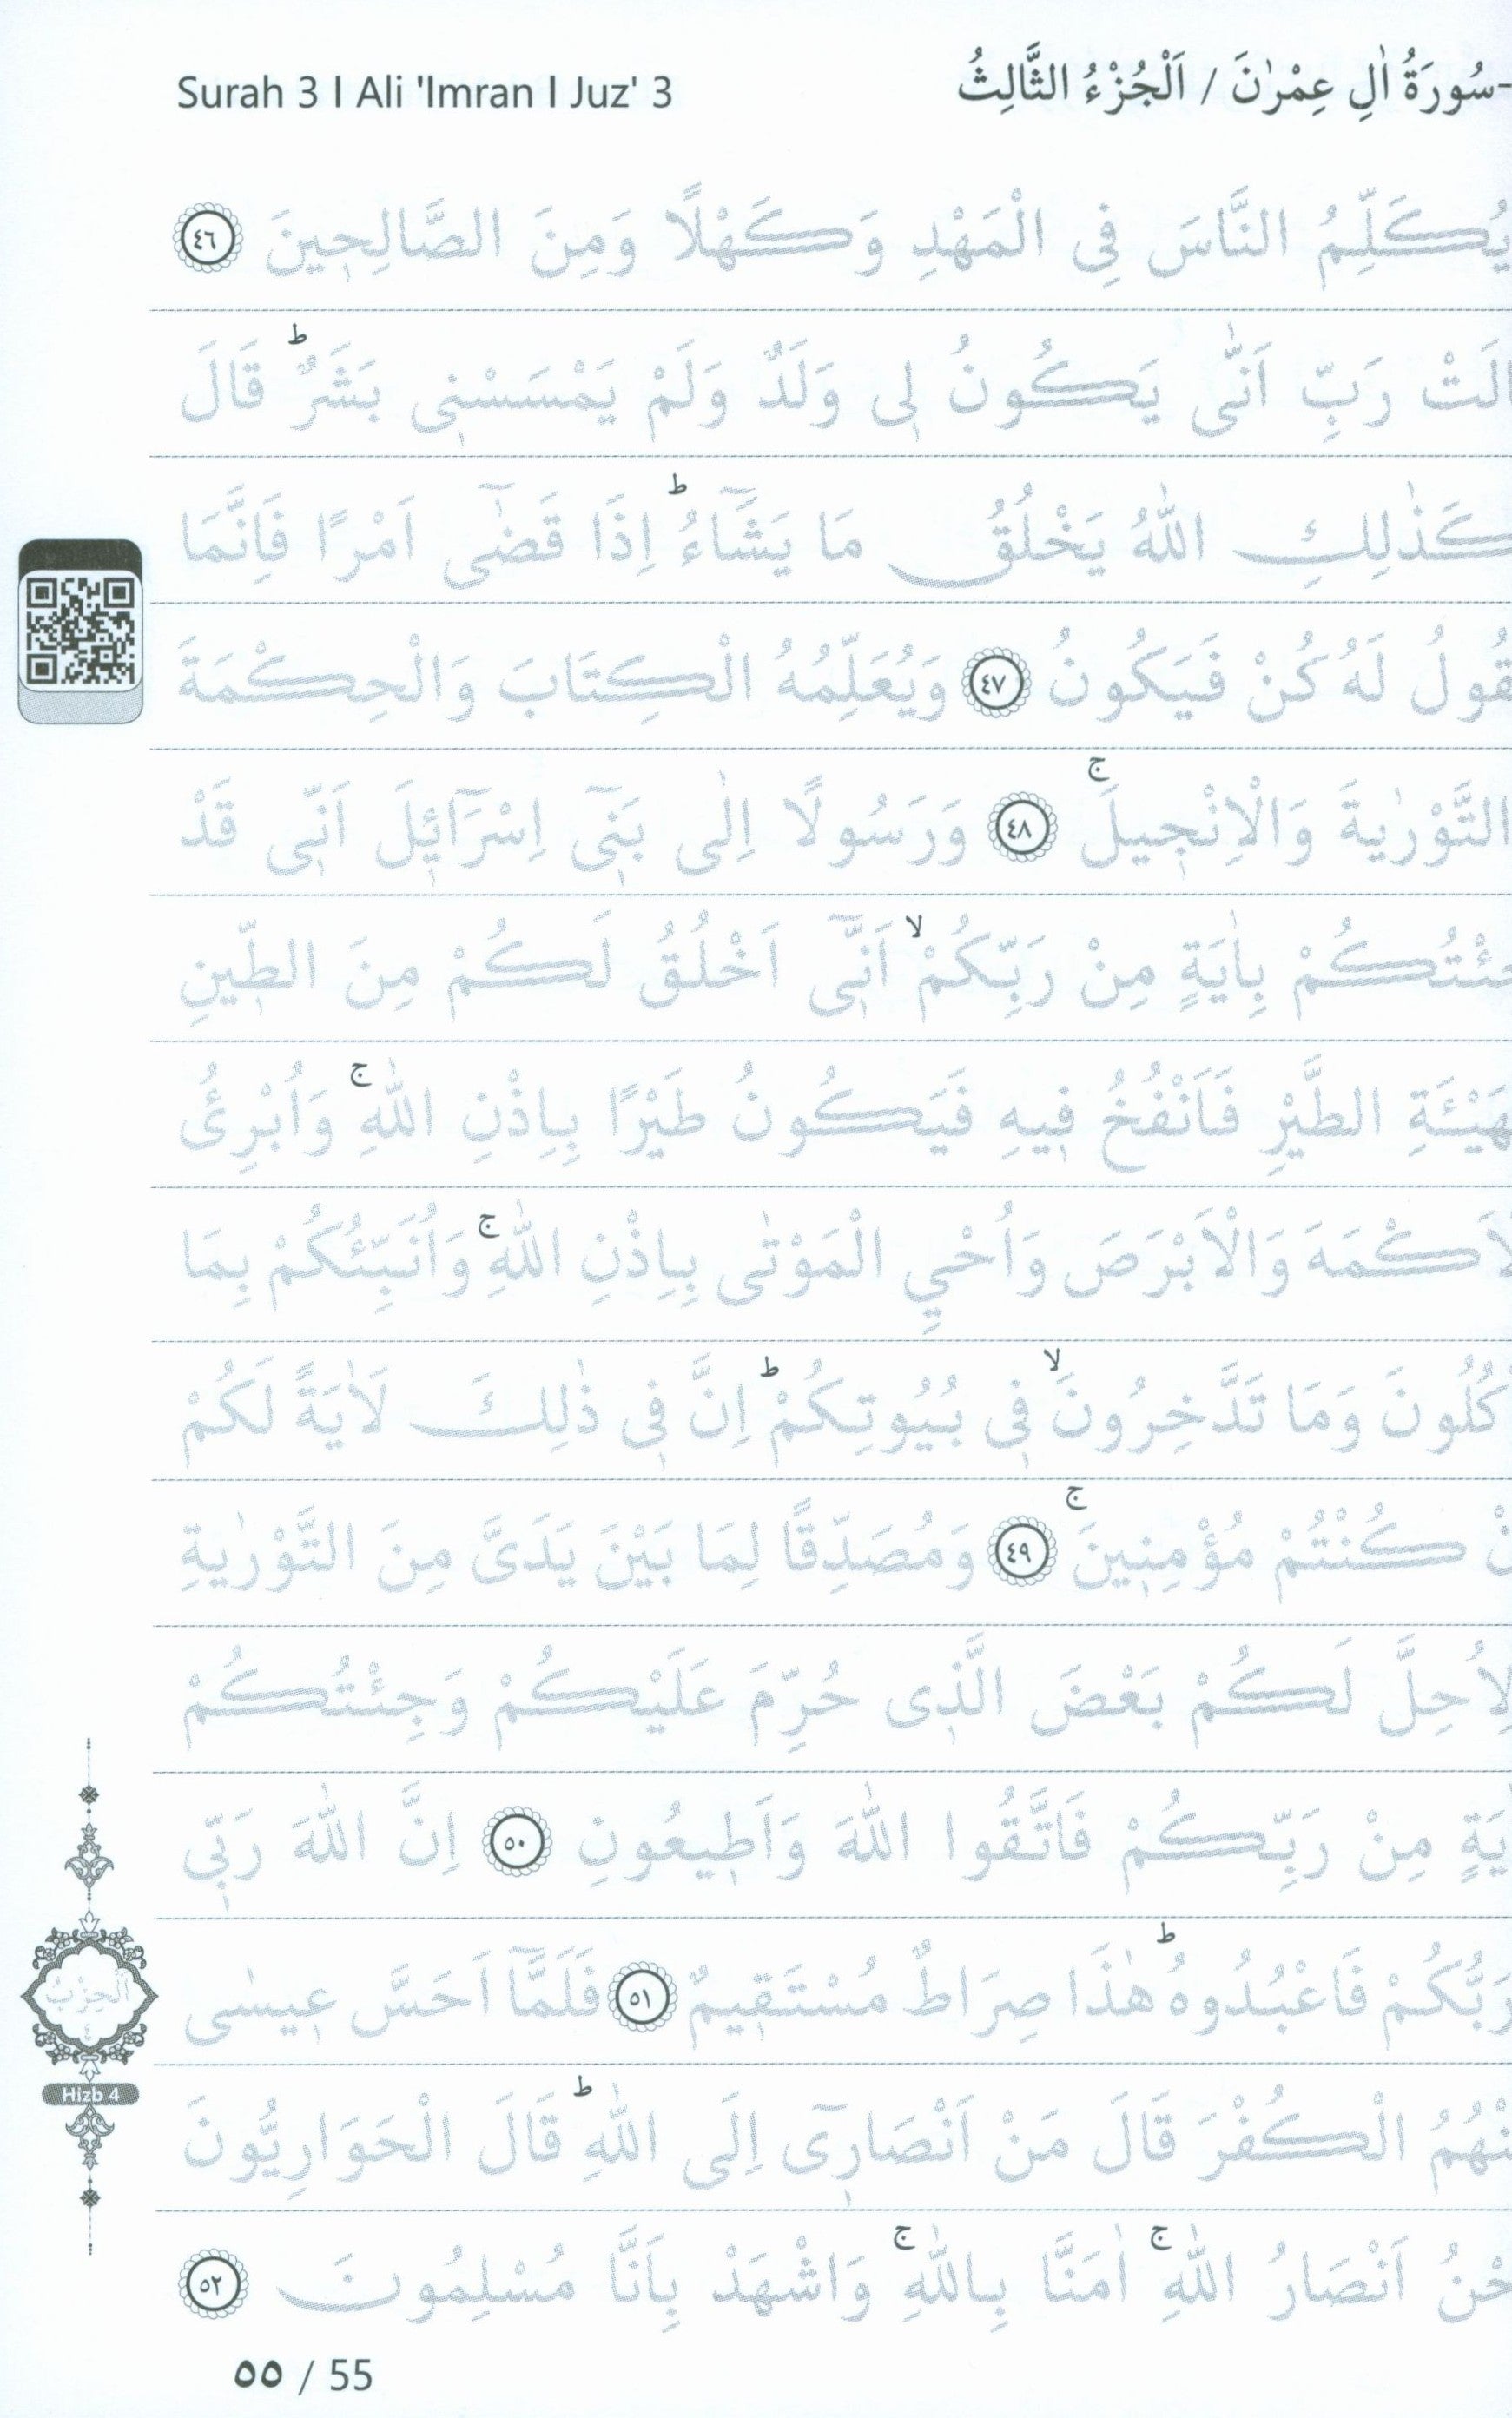 Surah 3 I Ali 'Imran I Juz' 3
سُورَةُ اٰلِ عِمْرٰنَ / اَلْجُزْءُ الثَّالِثُ-
يُكَلِّمُ النَّاسَ فِى الْمَهْدِ وَكَهْلًا وَمِنَ الصَّالِحٖينَ ٤٦
الَتْ رَبِّ اَنّٰى يَكُونُ لٖى وَلَدٌ وَلَمْ يَمْسَسْنٖى بَشَرٌؕ قَالَ
كَذٰلِكِ اللّٰهُ يَخْلُقُ مَا يَشَٓاءُؕ اِذَا قَضٰٓى اَمْرًا فَاِنَّمَا
قُولُ لَهُ كُنْ فَيَكُونُ ٤٧ وَيُعَلِّمُهُ الْكِتَابَ وَالْحِكْمَةَ
التَّوْرٰيةَ وَالْاِنْجٖيلَۚ ٤٨ وَرَسُولًا اِلٰى بَنٖٓى اِسْرَٓائٖلَ اَنّٖى قَدْ
جِئْتُكُمْ بِاٰيَةٍ مِنْ رَبِّكُمْۙ اَنّٖٓى اَخْلُقُ لَكُمْ مِنَ الطّٖينِ
هَيْـَٔةِ الطَّيْرِ فَاَنْفُخُ فٖيهِ فَيَكُونُ طَيْرًا بِاِذْنِ اللّٰهِۚ وَاُبْرِئُ
لْاَكْمَهَ وَالْاَبْرَصَ وَاُحْيِ الْمَوْتٰى بِاِذْنِ اللّٰهِۚ وَاُنَبِّئُكُمْ بِمَا
كُلُونَ وَمَا تَدَّخِرُونَۙ فٖى بُيُوتِكُمْؕ اِنَّ فٖى ذٰلِكَ لَاٰيَةً لَكُمْ
نْ كُنْتُمْ مُؤْمِنٖينَۚ ٤٩ وَمُصَدِّقًا لِمَا بَيْنَ يَدَىَّ مِنَ التَّوْرٰيةِ
لِاُحِلَّ لَكُمْ بَعْضَ الَّذٖى حُرِّمَ عَلَيْكُمْ وَجِئْتُكُمْ
يَةٍ مِنْ رَبِّكُمْ فَاتَّقُوا اللّٰهَ وَاَطٖيعُونِ ٥٠ اِنَّ اللّٰهَ رَبّٖى
رَبُّكُمْ فَاعْبُدُوهُؕ هٰذَا صِرَاطٌ مُسْتَقٖيمٌ ٥١ فَلَمَّٓا اَحَسَّ عٖيسٰى
نْهُمُ الْكُفْرَ قَالَ مَنْ اَنْصَارٖٓى اِلَى اللّٰهِؕ قَالَ الْحَوَارِيُّونَ
حْنُ اَنْصَارُ اللّٰهِۚ اٰمَنَّا بِاللّٰهِۚ وَاشْهَدْ بِاَنَّا مُسْلِمُونَ ٥٢
اَلْحِزْبُ
٤
Hizb 4
٥٥ / 55